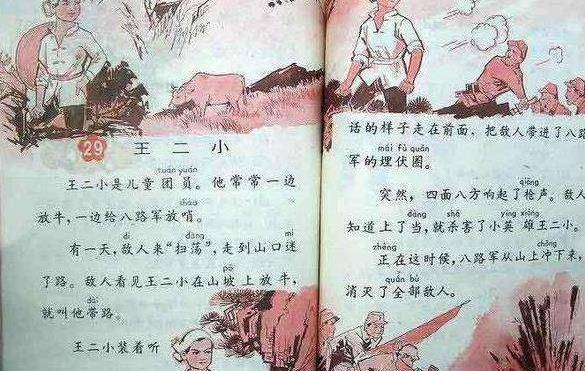 29 王二小
tuán yuán
王二小是儿童团员。他常常一边
shào
放牛,一边给八路军放哨。
dí dàng mí
有一天,敌人来“扫荡”,走到山口迷
pō
了路。敌人看见王二小在山坡上放牛,
dài
就叫他带路。
王二小装着听
话的样子走在前面,把敌人带进了八路
mái fú quān
军的埋伏圈。
qiāng
突然,四面八方响起了枪声。敌人
dàng shā yīng xióng
知道上了当,就杀害了小英雄王二小。
zhèng chōng
正在这时候,八路军从山上冲下来,
quán bù
消灭了全部敌人。